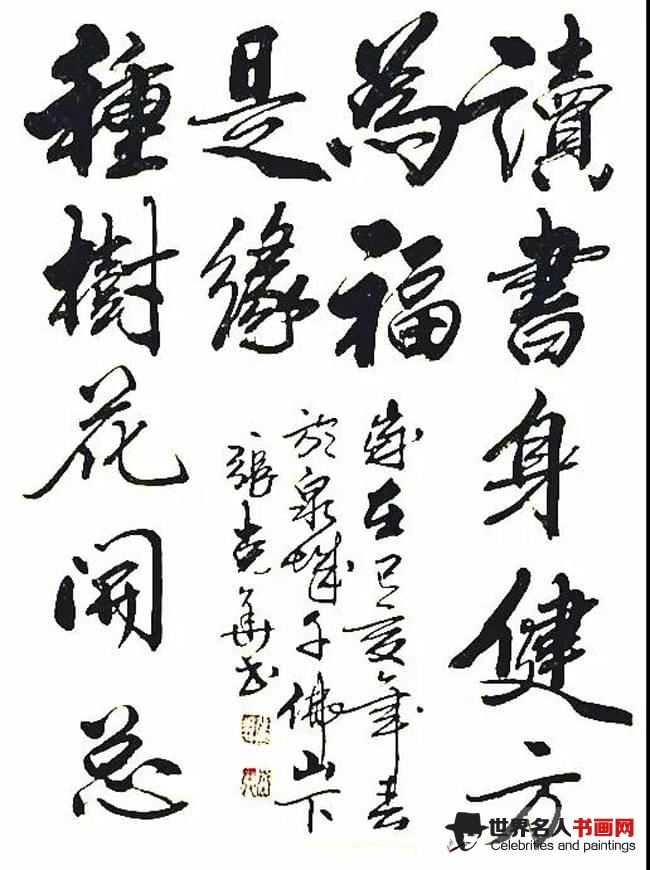 讀書身健方
為福
種樹花開总
是緣
歲在己亥年春
於泉城千佛山下
張克華书
世界名人书画网
Celebrities and paintings